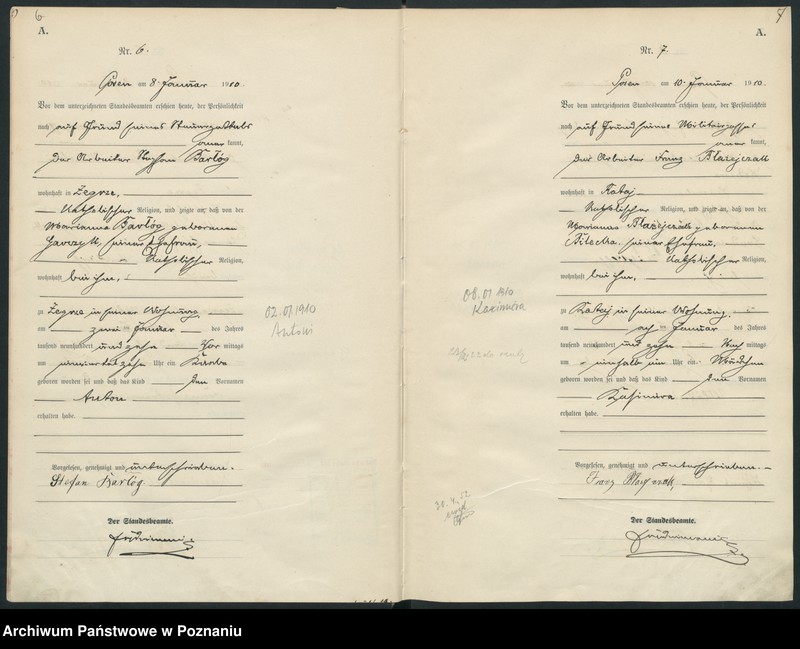 6
A.
Nr. 6.
Posen am 8. Januar 1910
Vor dem unterzeichneten Standesbeamten erschien heute, der Persönlichkeit
nach auf Grund seines Steuerzettels
kannt,
der Arbeiter Stephan Bartóg
wohnhaft in Zegrze,
katholischer Religion, und zeigte an, daß von der
Marianna Bartóg geborenen
seiner Ehefrau,
katholischer Religion,
wohnhaft bei ihm,
zu Zegrze in seiner Wohnung
am zwei ten Januar des Jahres
tausend neunhundert und zehn Vor mittags
um Uhr ein Knabe
geboren worden sei und daß das Kind den Vornamen
Anton
erhalten habe.
Vorgelesen, genehmigt und unterschrieben.
Stefan Bartóg
Der Standesbeamte.
02.01.1910
Antoni
7
A.
Nr. 7.
Posen am 10. Januar 1910.
Vor dem unterzeichneten Standesbeamten erschien heute, der Persönlichkeit
nach auf Grund seines Militairpasses
kannt,
der Arbeiter Franz Błażejczak
wohnhaft in Rataj
katholischer Religion, und zeigte an, daß von der
Marianna Błażejczak geborenen
seiner Ehefrau,
katholischer Religion,
wohnhaft bei ihm,
zu Rataj in seiner Wohnung,
am acht Januar des Jahres
tausend neunhundert und zehn Nach mittags
um einhalb ein Uhr ein Mädchen
geboren worden sei und daß das Kind den Vornamen
Kasimira
erhalten habe.
Vorgelesen, genehmigt und unterschrieben.
Franz
Der Standesbeamte.
08.01.1910
Kazimiera
Archiwum Państwowe w Poznaniu